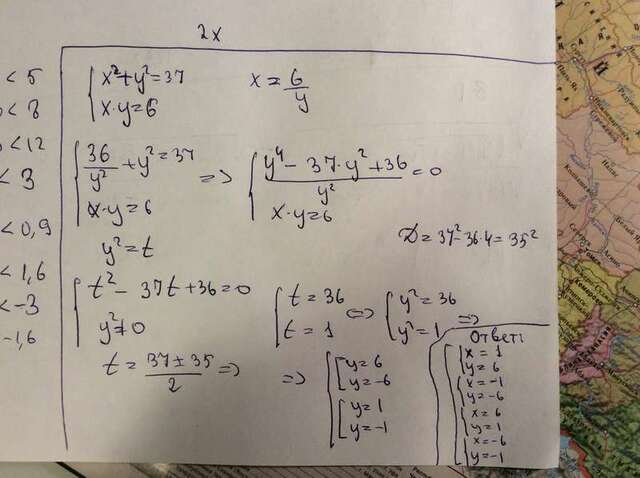 2x
< 5
< 8
< 12
< 3
< 0,9
< 1,6
< -3
-1,6
{ x²+y²=37
x·y=6
x = 6/y
{ 36/y² + y² = 37
x·y=6
=>
{ (y⁴ - 37·y² + 36)/y² = 0
x·y=6
y² = t
D = 37²-36·4 = 35²
{ t² - 37t + 36 = 0
y² ≠ 0
{ t = 36
t = 1
<=>
{ y² = 36
y² = 1
=>
t = (37 ± 35)/2 =>
=>
{ [ y = 6
y = -6
[ y = 1
y = -1
Ответ:
{ x = 1
y = 6
{ x = -1
y = -6
{ x = 6
y = 1
{ x = -6
y = -1